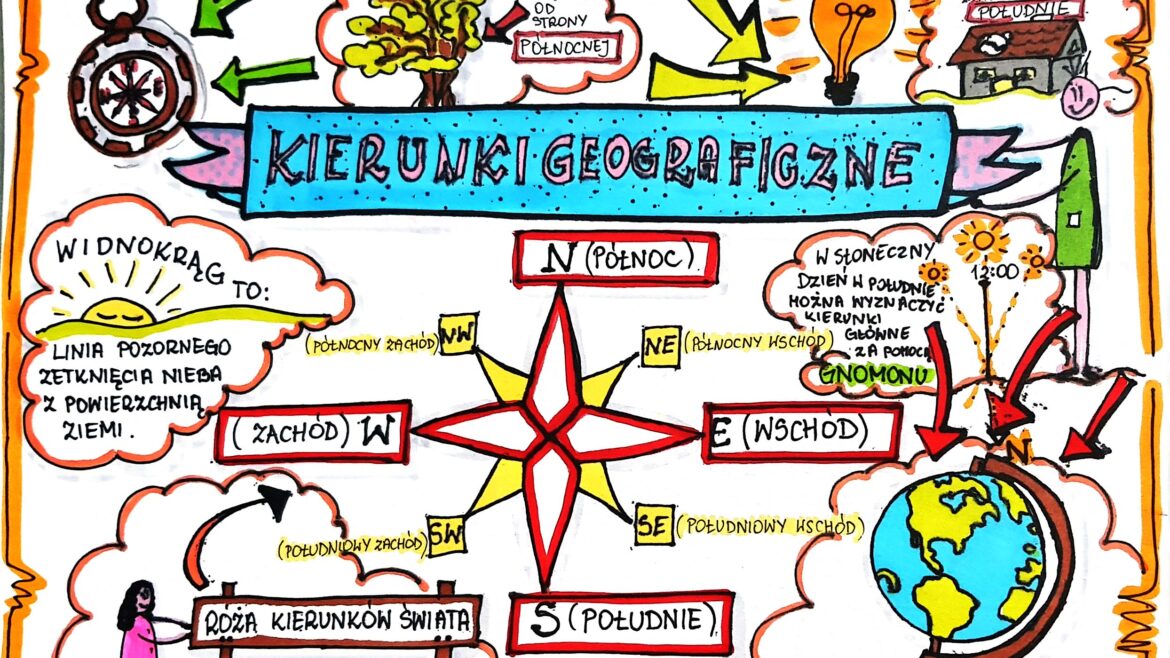 OD
STRONY
PÓŁNOCNEJ
POŁUDNIE
KIERUNKI GEOGRAFICZNE
WIDNOKRĄG TO:
LINIA POZORNEGO
ZETKNIĘCIA NIEBA
Z POWIERZCHNIĄ
ZIEMI.
N (PÓŁNOC)
W SŁONECZNY
DZIEŃ W POŁUDNIE
MOŻNA WYZNACZYĆ
KIERUNKI
GŁÓWNE
ZA POMOCĄ
GNOMONU
12:00
(PÓŁNOCNY ZACHÓD) NW
NE (PÓŁNOCNY WSCHÓD)
(ZACHÓD) W
E (WSCHÓD)
N
(POŁUDNIOWY ZACHÓD) SW
SE (POŁUDNIOWY WSCHÓD)
RÓŻA KIERUNKÓW ŚWIATA
S (POŁUDNIE)